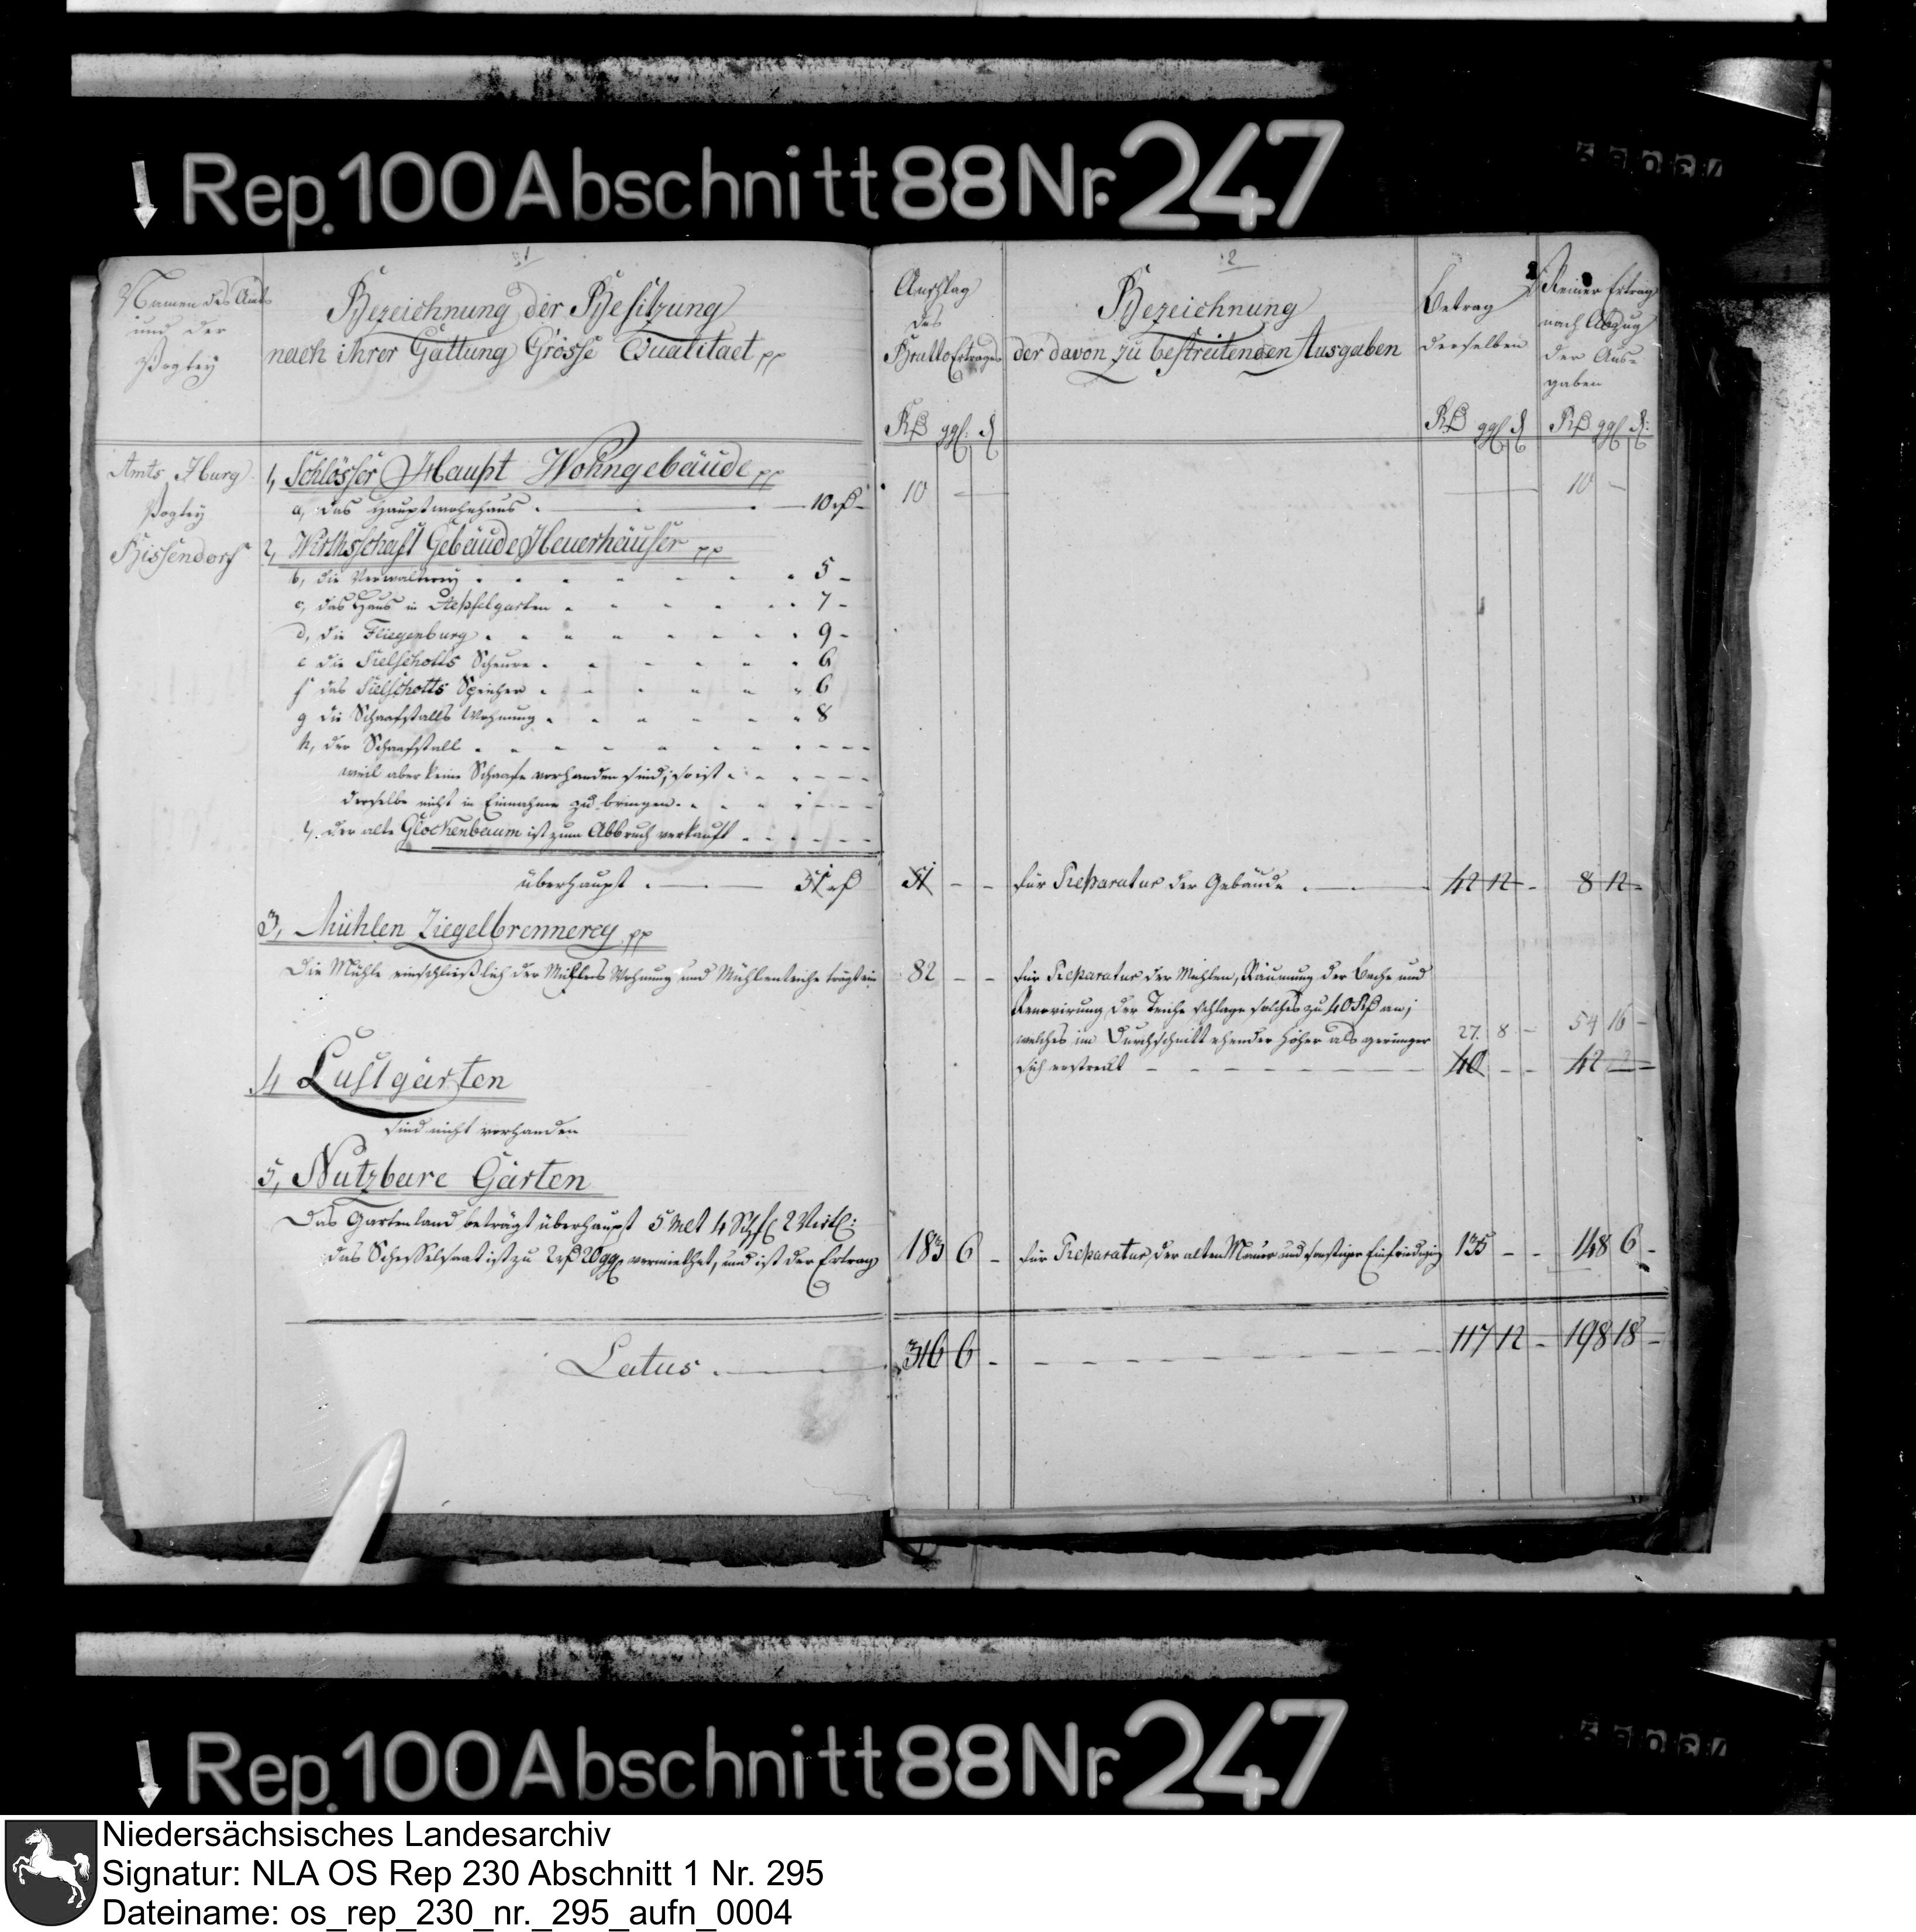 Rep. 100 Abschnitt 88 Nr. 247
1
2
Namen des Amts
und der
Vogtey
Bezeichnung der Besitzung
nach ihrer Gattung Grösse Qualitaet pp
Anschlag
des
Brutto Ertrages
Bezeichnung
der davon zu bestreitenden Ausgaben
Betrag
derselben
Reiner Ertrag
nach Abzug
der Aus-
gaben
Amts Iburg
Vogtey
Bissendorf
1, Schlösser Haupt Wohngebäude pp
a, das Hauptwohnhaus 10 10 10
2, Wirthschaft Gebäude Heuerhäuser pp
b, die Verwalterey 5
c, das Haus in Aepfelgarten 7
d, die Fliegenburg 9
e die Sielschotts Scheure 6
f das Sielschotts Speicher 6
g die Schaafstalls Wohnung 8
h, der Schaafstall
weil aber keine Schaafe vorhanden sind, so ist
derselbe nicht in Einnahme zu bringen
der alte Glockenbaum ist zum Abbruch verkauft
überhaupt 51 51 für Reparatur der Gebäude 42 12 8 12
3, Mühlen Ziegelbrennerey pp
Die Mühle einschließlich der Müllers Wohnung und Mühlenteiche trägt ein 82 für Reparatur der Mühlen, Räumung der Bache und
Renovirung der Teiche schlage solches zu 40 an,
welches im Durchschnitt ehender höher als geringer 27 8 54 16
sich erstreckt 40 42
4 Lustgärten
sind nicht vorhanden
5, Nutzbare Gärten
Das Gartenland beträgt überhaupt 5 4 2
das Scheffelsaat ist zu 2 20 vermiethet, und ist der Ertrag 183 6 für Reparatur der alten Mauer und sonstiger 135 148 6
Latus 316 6 117 12 198 18
Rep. 100 Abschnitt 88 Nr. 247
Niedersächsisches Landesarchiv
Signatur: NLA OS Rep 230 Abschnitt 1 Nr. 295
Dateiname: os_rep_230_nr._295_aufn_0004